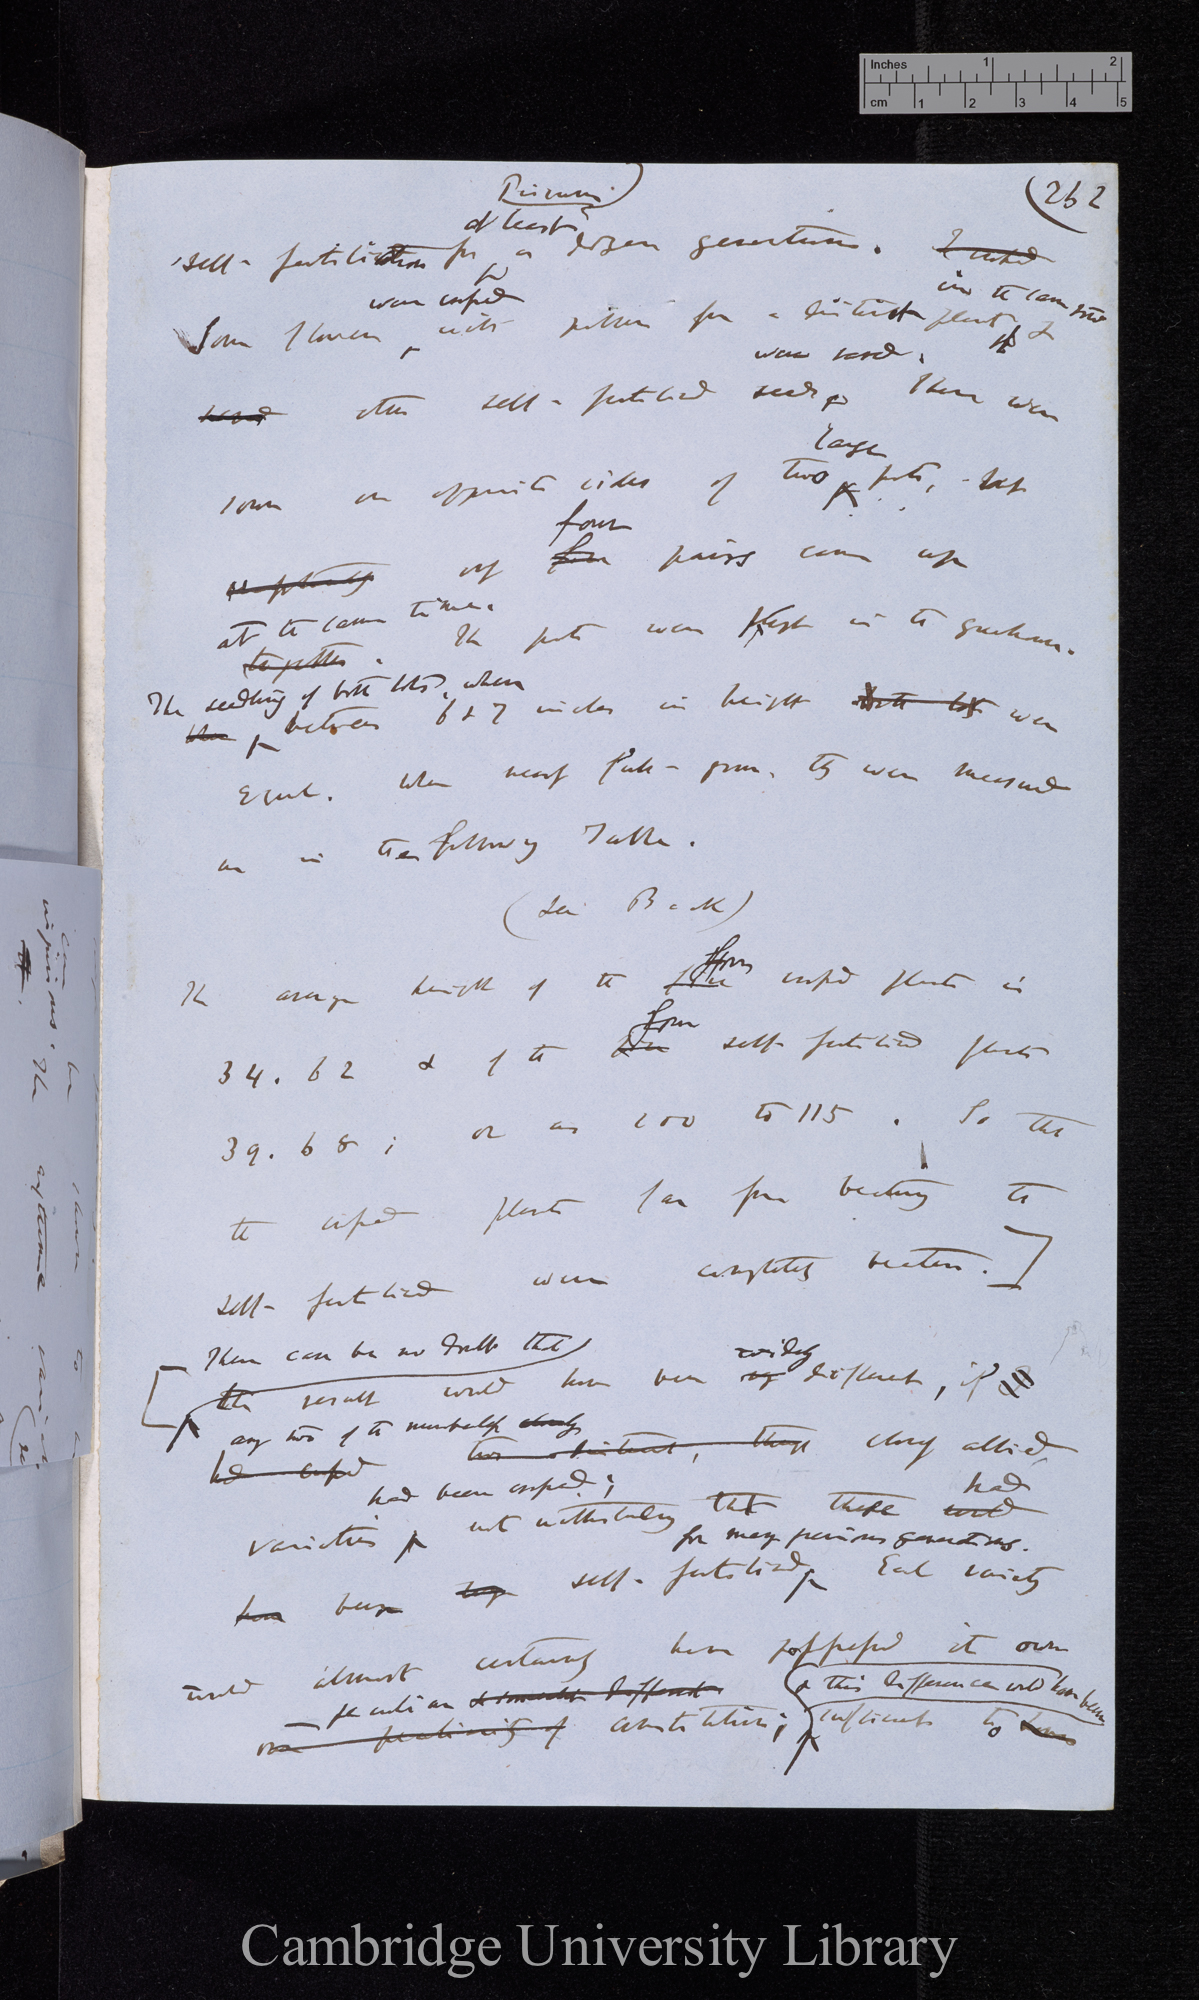 Inches 1 2
cm 1 2 3 4 5
Pisum
(262
at least
self-fertilisation for a dozen generations. I crossed
were crossed in the same
Some flowers with pollen from a distinct plant &
were saved.
saved other self-fertilised seeds These were
large
sown on opposite sides of two pots, but
four
only five pairs came up
at the same time.
together. The pots were kept in the greenhouse.
The seedlings of both lots, when
when between 6 & 7 inches in height both lots were
equal. When nearly full-grown, they were measured
as in the following Table.
(See Back)
four
The average height of the five crossed plants is
four
34.62 & of the five self-fertilised plants
39.68; or as 100 to 115. So that
the crossed plants far from beating the
self-fertilised were completely beaten.]
There can be no doubt that
widely
[the result would have been different, if
any two of the numberless closely
had crossed two distinct, though closely allied
had been crossed; had
varieties notwithstanding that these could
for many previous generations.
have been long self-fertilised Each variety
would almost certainly have possessed its own
peculiar & somewhat different & this difference would have been
own peculiarity of constitution; sufficient to have
Cambridge University Library